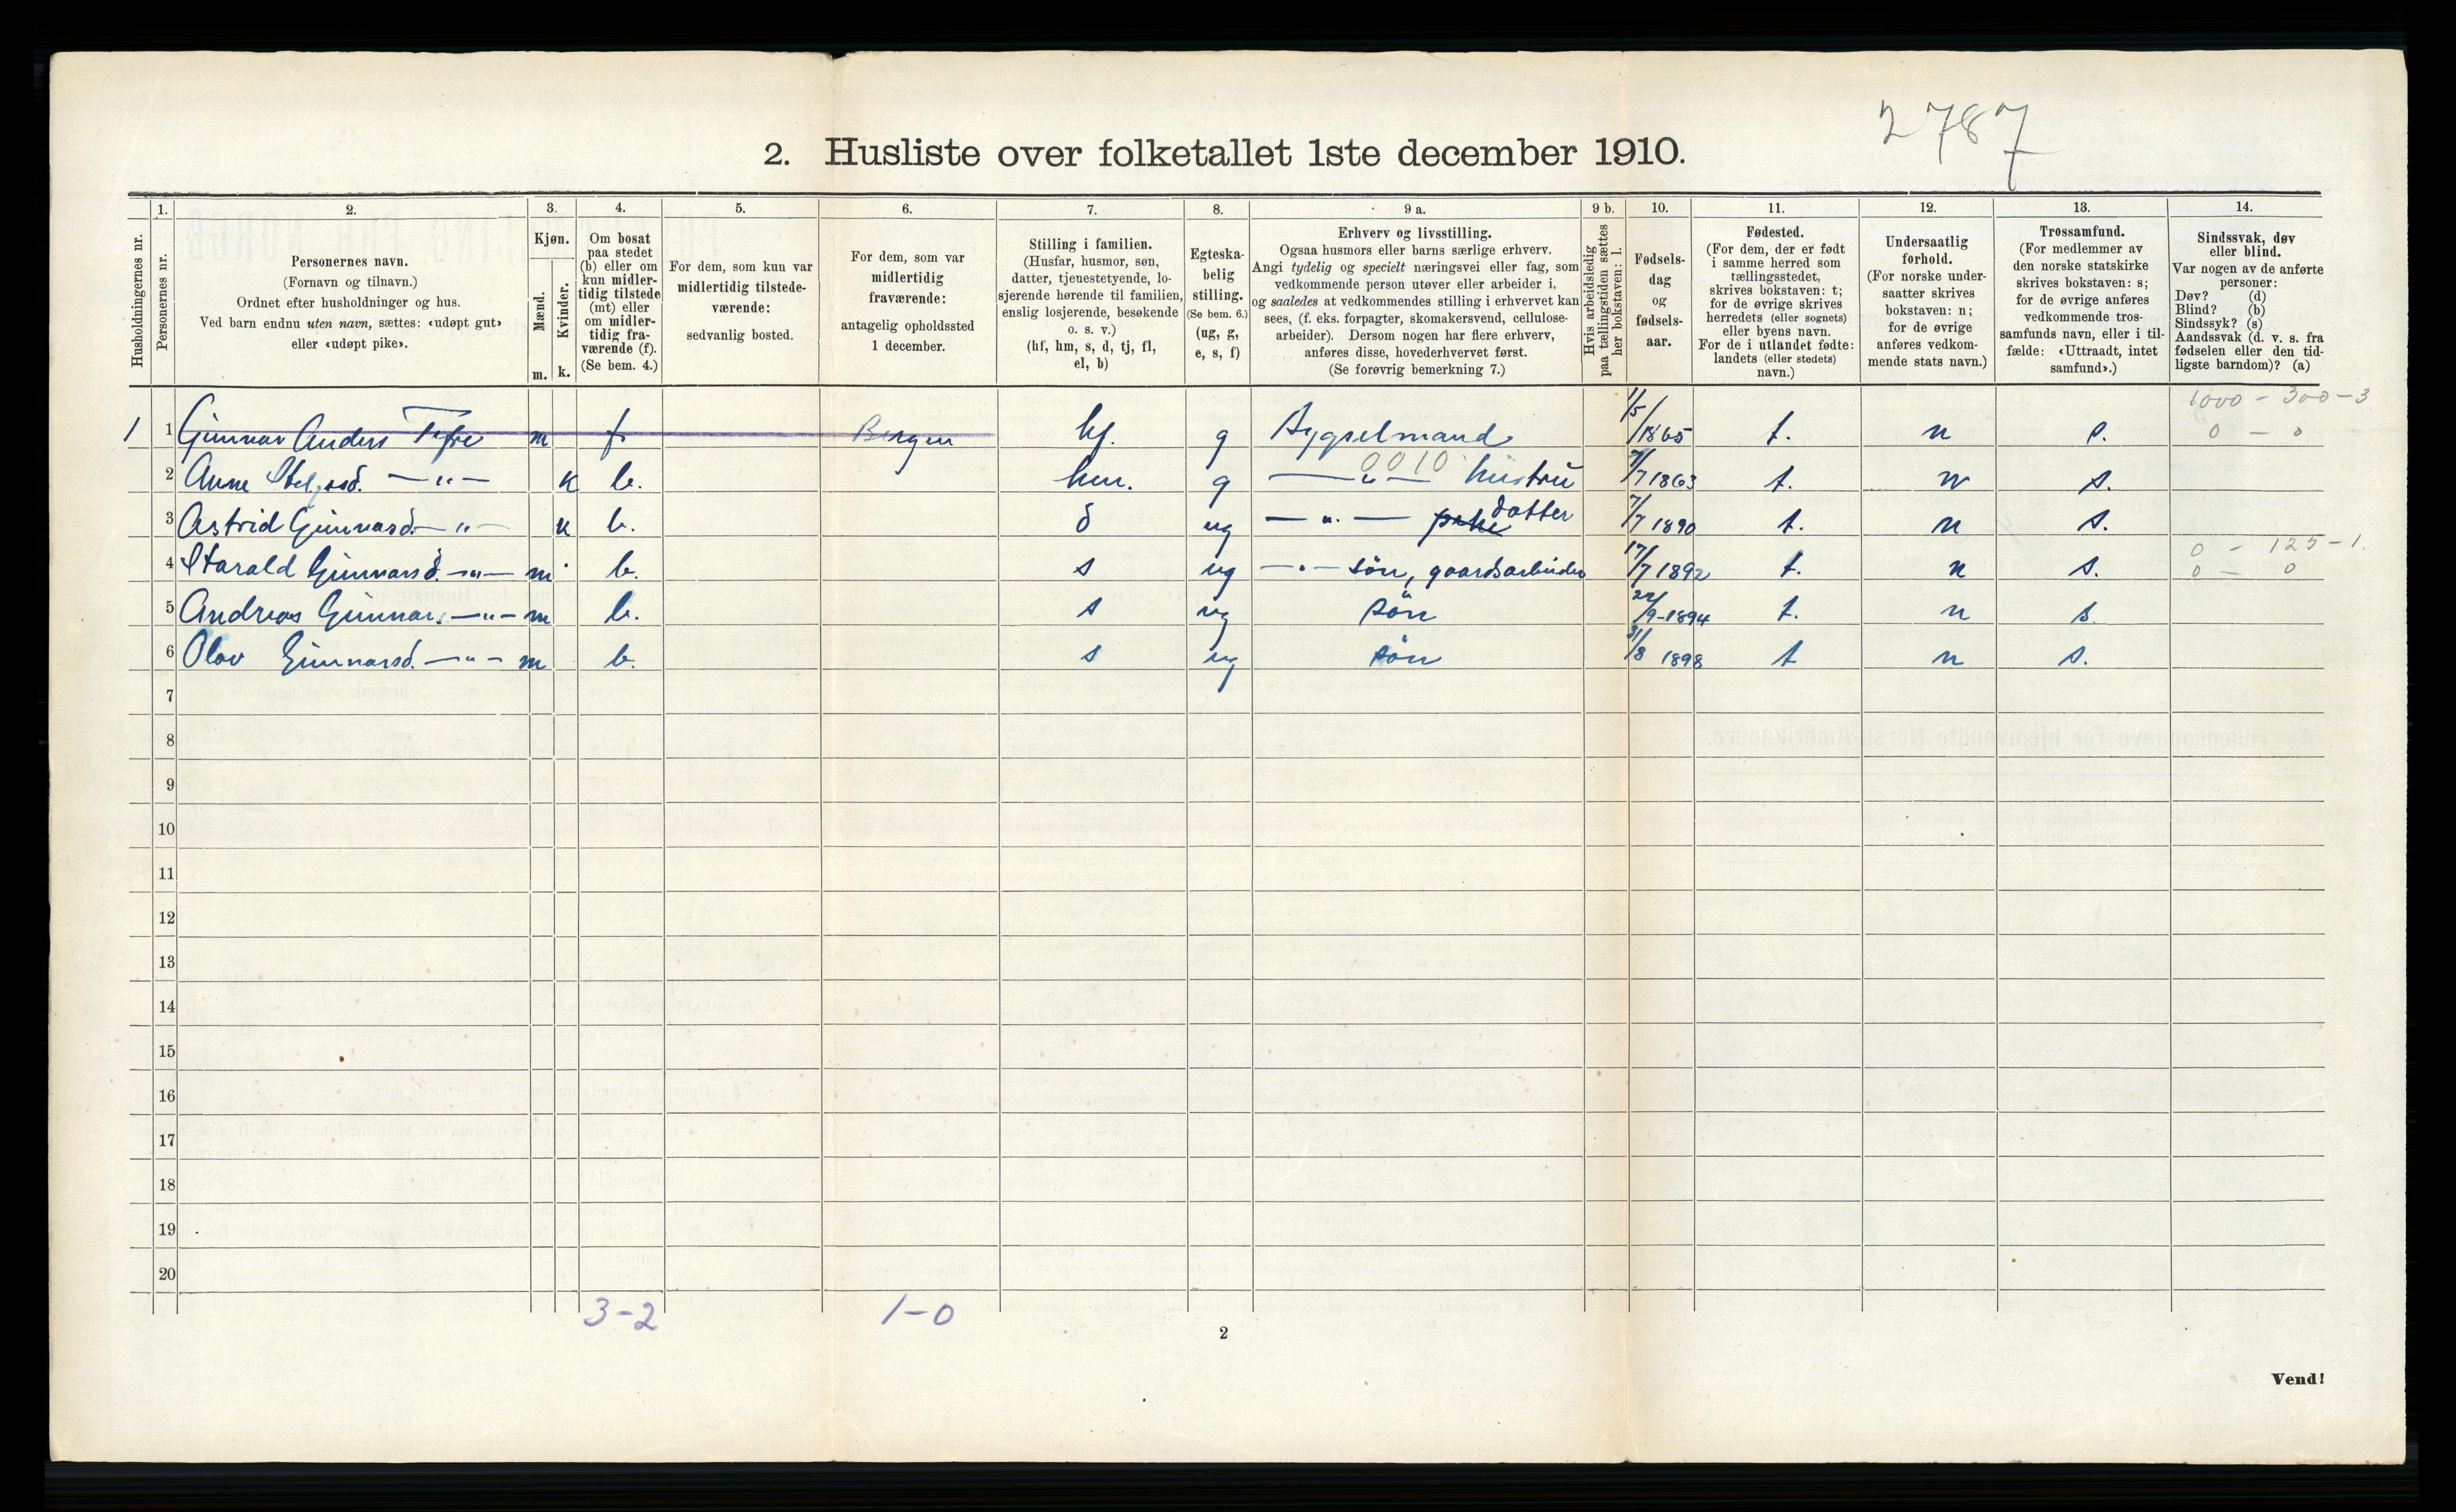 2787
2. Husliste over folketallet 1ste december 1910.
Husholdningernes nr.
1.
Personernes nr.
2.
Personernes navn.
(Fornavn og tilnavn.)
Ordnet efter husholdninger og hus.
Ved barn endnu uten navn, sættes: «udøpt gut»
eller «udøpt pike».
3.
Kjøn.
Mænd.
Kvinder.
m. k.
4.
Om bosat
paa stedet
(b) eller om
kun midler-
tidig tilstede
(mt) eller
om midler-
tidig fra-
værende (f).
(Se bem. 4.)
5.
For dem, som kun var
midlertidig tilstede-
værende:
sedvanlig bosted.
6.
For dem, som var
midlertidig
fraværende:
antagelig opholdssted
1 december.
7.
Stilling i familien.
(Husfar, husmor, søn,
datter, tjenestetyende, lo-
sjerende hørende til familien,
enslig losjerende, besøkende
o. s. v.)
(hf, hm, s, d, tj, fl,
el, b)
8.
Egteska-
belig
stilling.
(Se bem. 6.)
(ug, g,
e, s, f)
9 a.
Erhverv og livsstilling.
Ogsaa husmors eller barns særlige erhverv.
Angi tydelig og specielt næringsvei eller fag, som
vedkommende person utøver eller arbeider i,
og saaledes at vedkommendes stilling i erhvervet kan
sees, (f. eks. forpagter, skomakersvend, cellulose-
arbeider). Dersom nogen har flere erhverv,
anføres disse, hovederhvervet først.
(Se forøvrig bemerkning 7.)
9 b.
Hvis arbeidsledig
paa tællingstiden sættes
her bokstaven: l.
10.
Fødsels-
dag
og
fødsels-
aar.
11.
Fødested.
(For dem, der er født
i samme herred som
tællingsstedet,
skrives bokstaven: t;
for de øvrige skrives
herredets (eller sognets)
eller byens navn.
For de i utlandet fødte:
landets (eller stedets)
navn.)
12.
Undersaatlig
forhold.
(For norske under-
saatter skrives
bokstaven: n;
for de øvrige
anføres vedkom-
mende stats navn.)
13.
Trossamfund.
(For medlemmer av
den norske statskirke
skrives bokstaven: s;
for de øvrige anføres
vedkommende tros-
samfunds navn, eller i til-
fælde: «Uttraadt, intet
samfund».)
14.
Sindssvak, døv
eller blind.
Var nogen av de anførte
personer:
Døv? (d)
Blind? (b)
Sindssyk? (s)
Aandssvak (d. v. s. fra
fødselen eller den tid-
ligste barndom)? (a)
1000 - 300-3
1 1 Gunnar Anders m f Bergen hf. g 1/5 1865 t. n s. 0 - 0
0010
2 Anne —„— k b. hm. g —„— hustru 7/7 1863 t. n s.
3 Astrid Gunnarsd. —„— k b. d ug —„— pike datter 7/7 1890 t. n s.
0 - 125-1.
4 Harald Gunnarsø. —„— m b. s ug —„— søn, gaardsarbeider 17/7 1892 t. n s. 0 - 0
5 Andreas Gunnars. —„— m b. s ug søn 22/9-1894 t. n s.
6 Olav Gunnarsø. —„— m b. s ug søn 31/8 1898 t n s.
7
8
9
10
11
12
13
14
15
16
17
18
19
20
3-2 1-0
2
Vend!